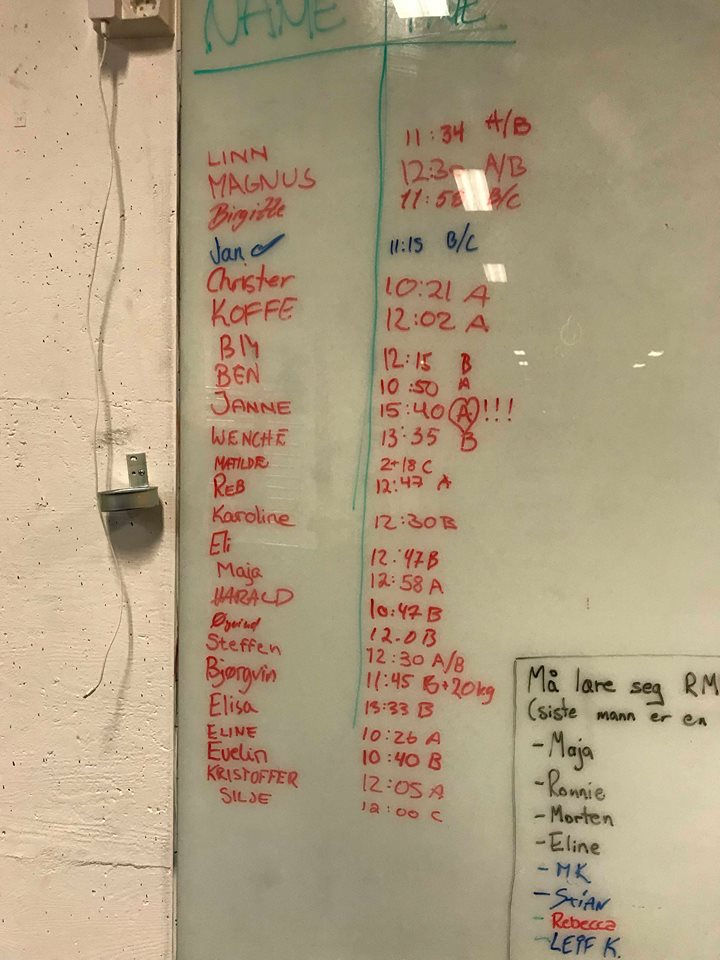 NAME TIME
LINN 11:34 A/B
MAGNUS 12:30 A/B
Birgitte 11:58 B/C
Jan 11:15 B/C
Christer 10:21 A
KOFFE 12:02 A
BM 12:15 B
BEN 10:50 A
JANNE 15:40 A!!!
WENCHE 13:35 B
MATILDE 2+18 C
REB 12:47 A
Karoline 12:30 B
Eli 12:47 B
Maja 12:58 A
HARALD 10:47 B
Øyvind 12.0 B
Steffen 12:30 A/B
Bjørgvin 11:45 B+20kg
Elisa 13:33 B
ELINE 10:26 A
Evelin 10:40 B
KRISTOFFER 12:05 A
SILJE 12:00 C
Må lære seg RM
(siste mann er en
-Maja
-Ronnie
-Morten
-Eline
-MK
-Stian
-Rebecca
-LEIF K.